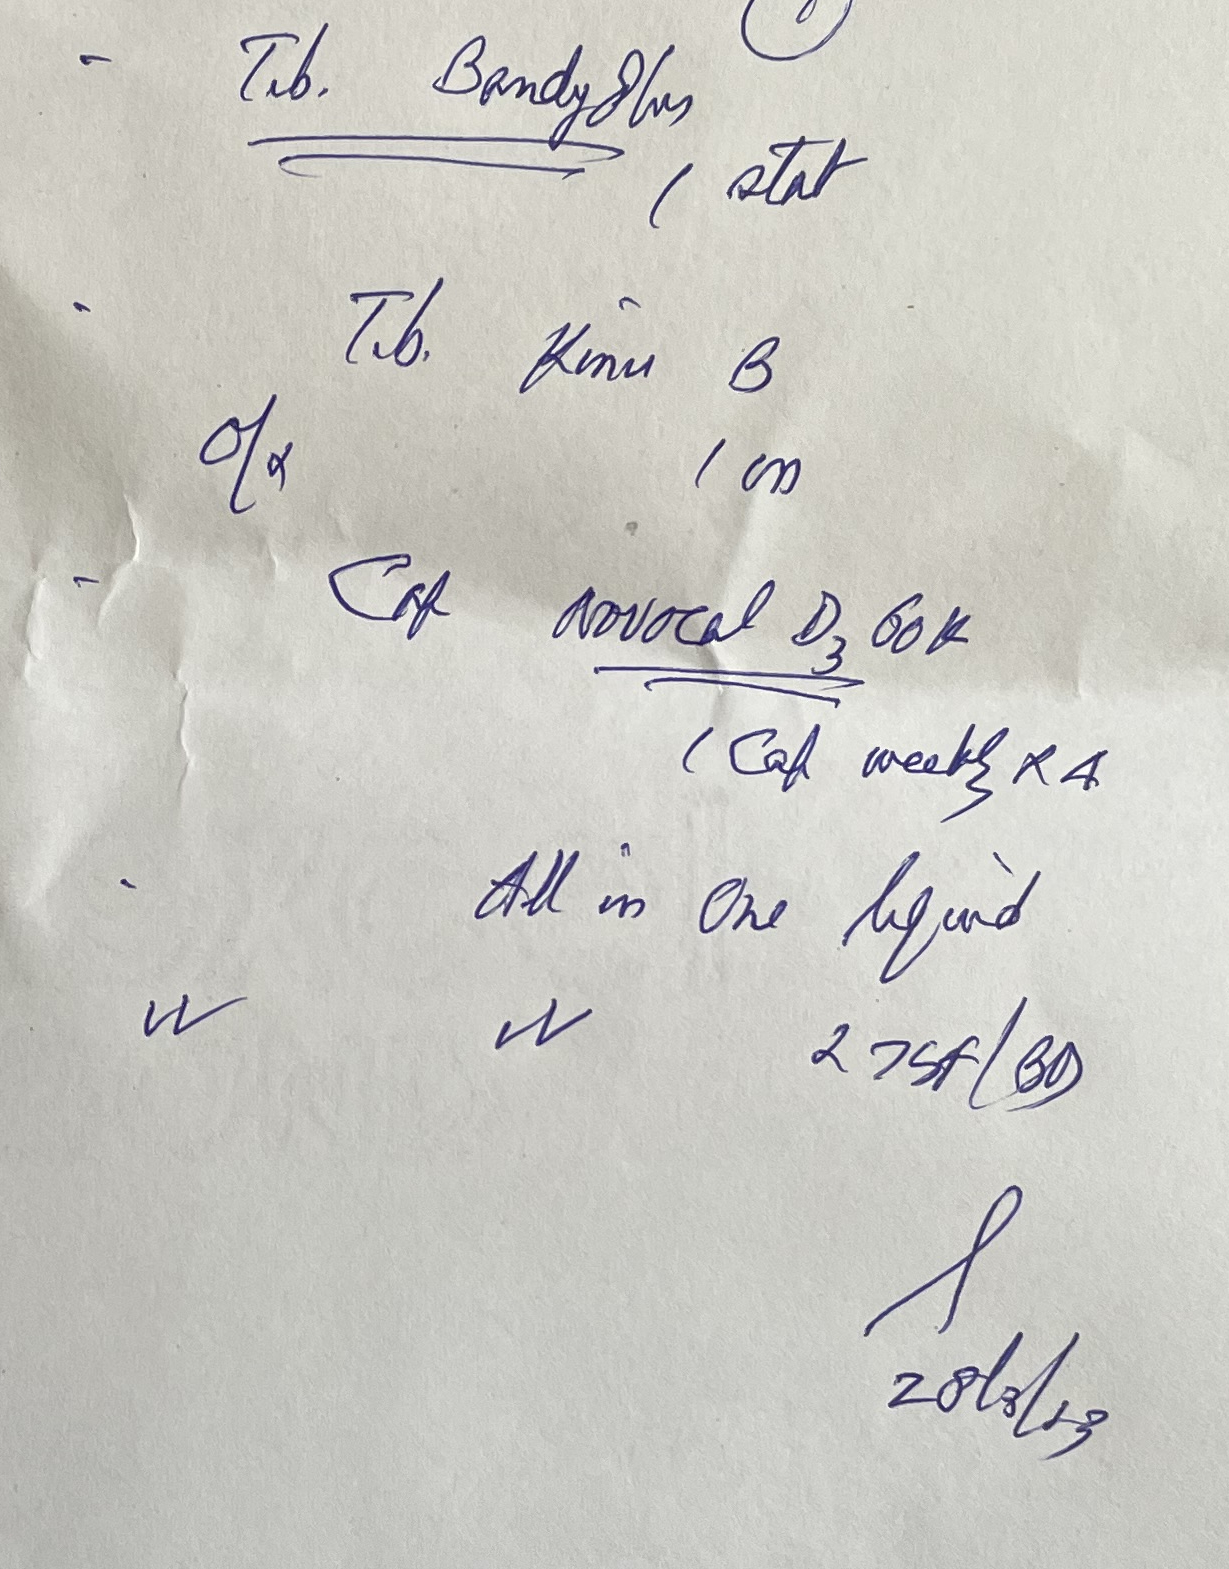 - Tab. Bandy Plus
1 stat
- Tab. Kinu B
1 on
- Cap Novocal D3 60K
1 Cap weekly x 4
- All in One liquid
2 TSF/BD
28/3/23